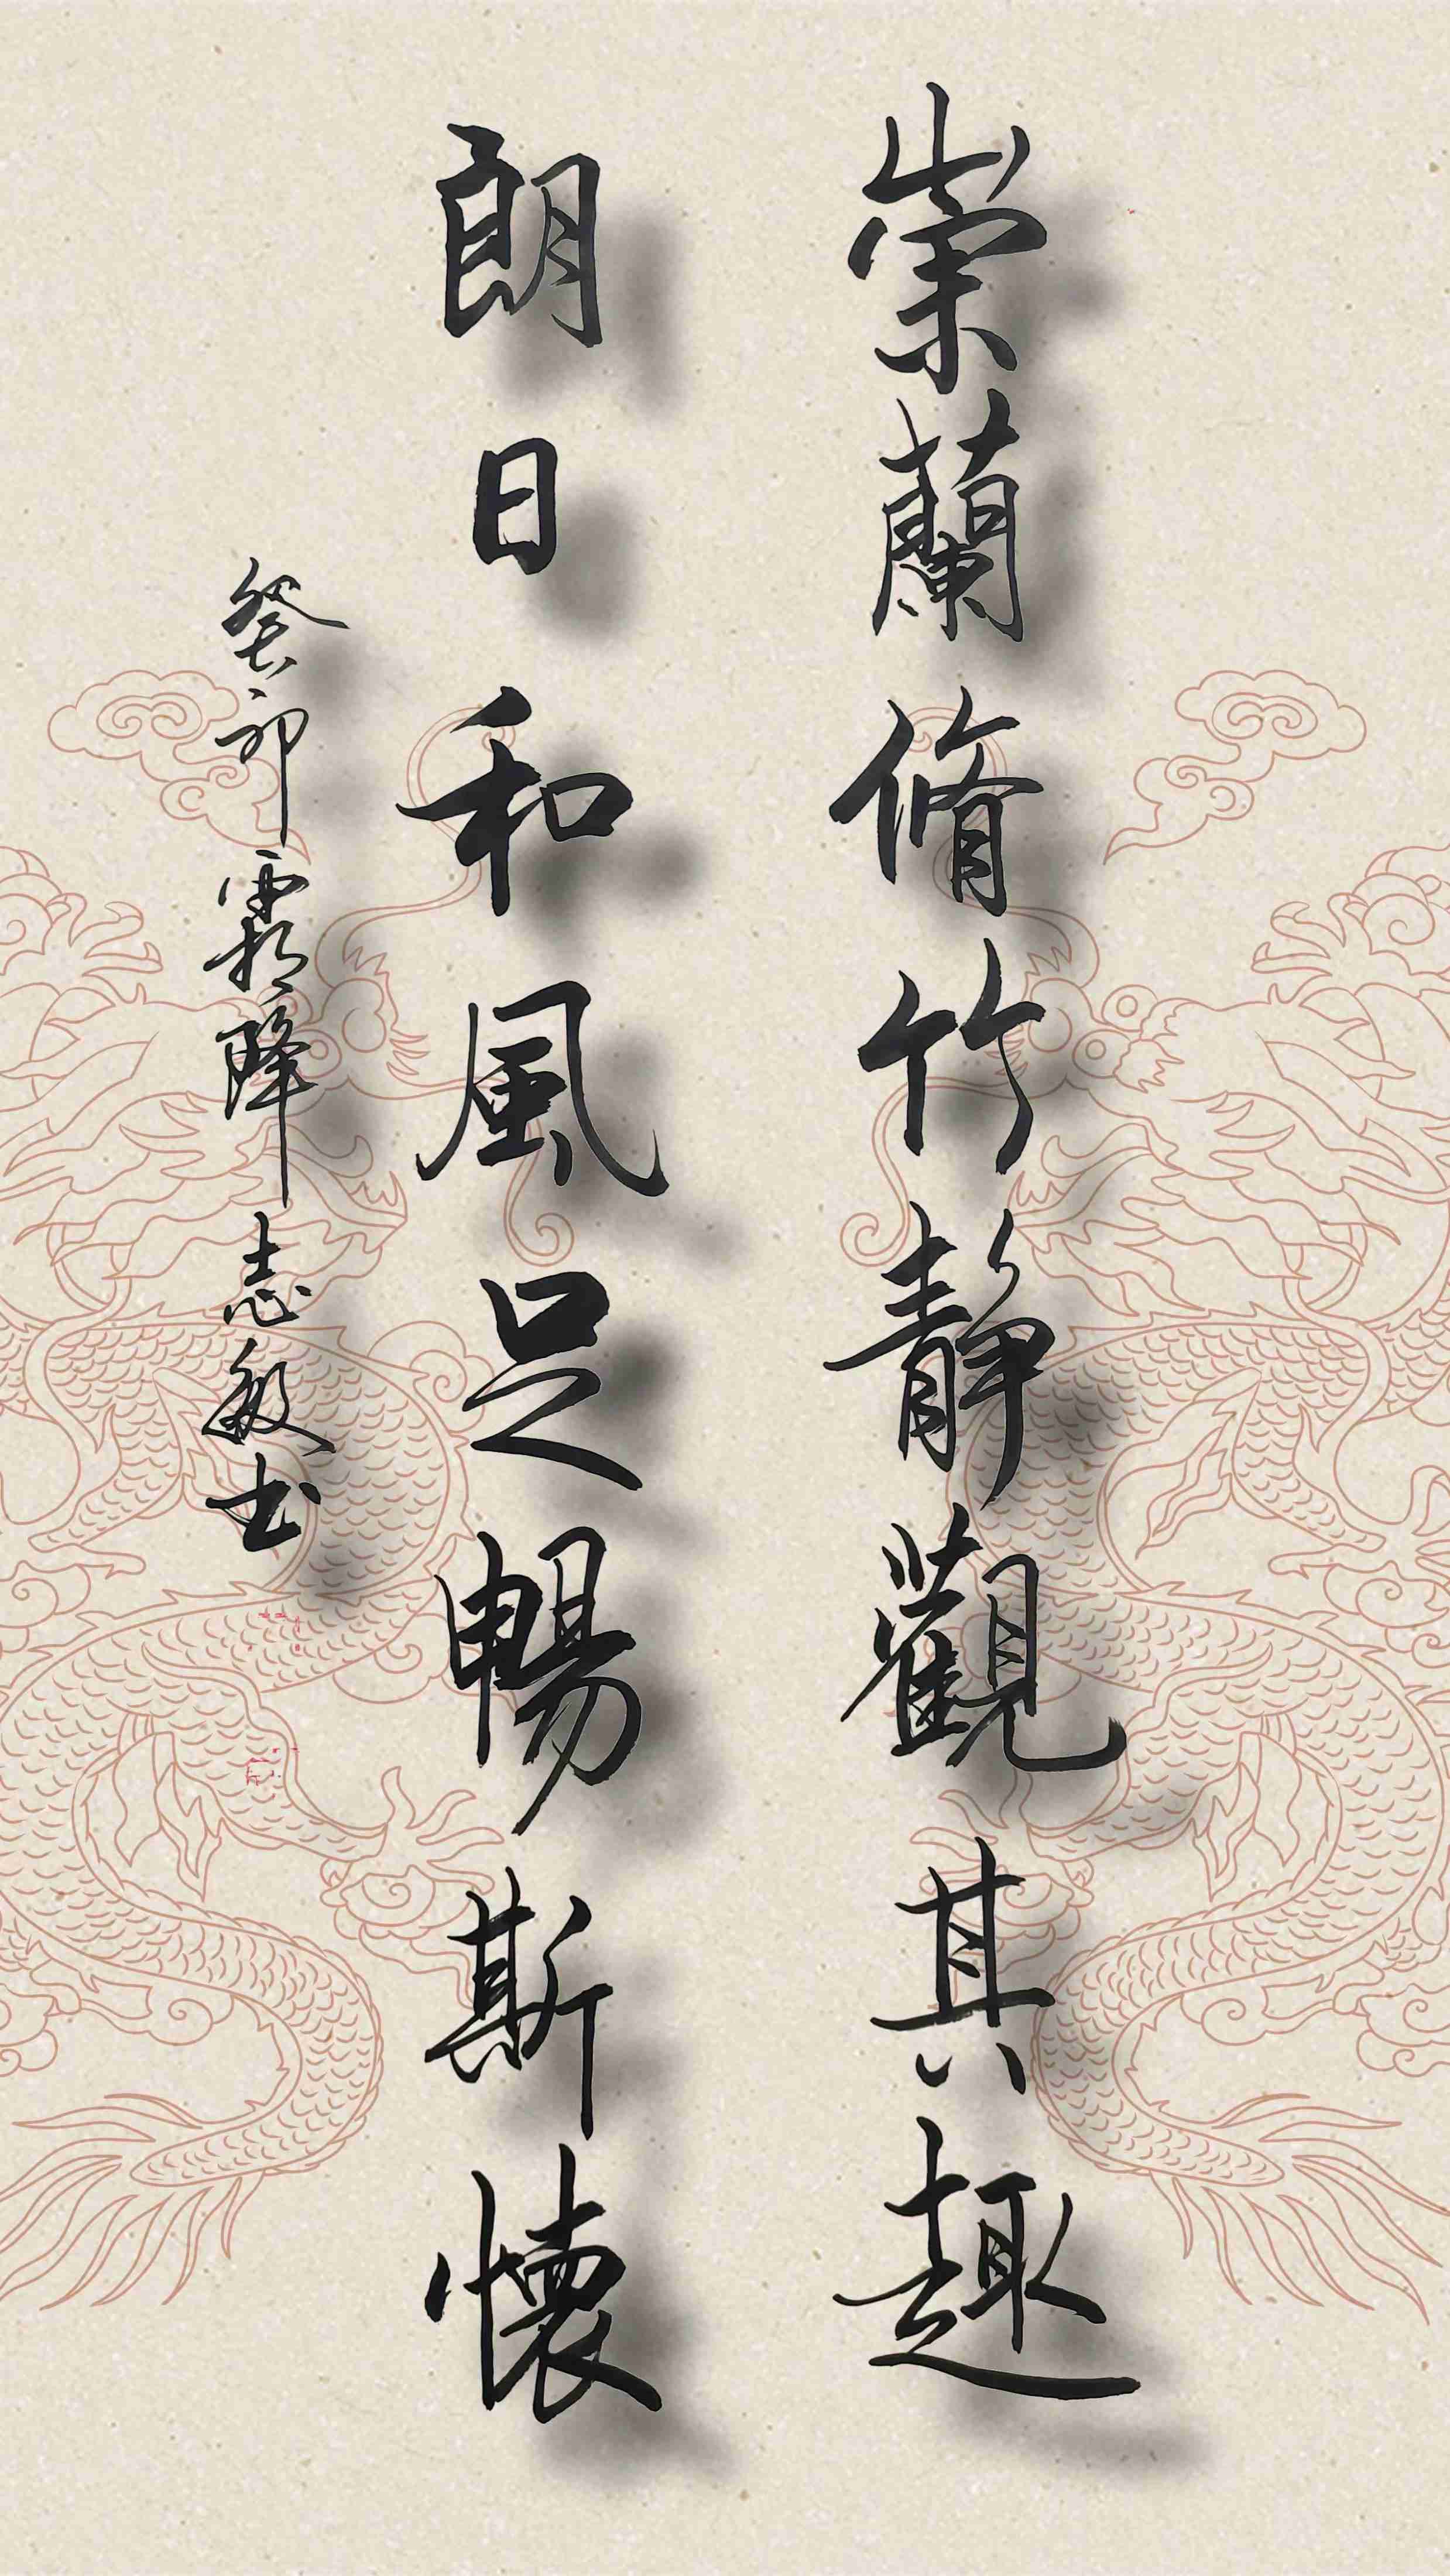 崇蘭脩竹靜觀其趣
朗日和風足暢斯懷
癸卯霜降志敏书